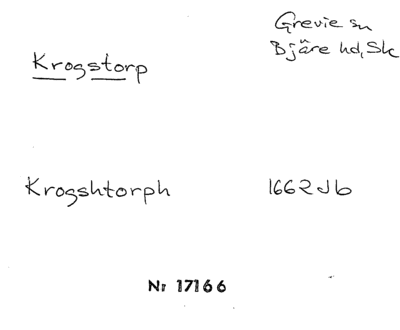 Grevie sn
Krogstorp Bjäre hd, Sk
Krogshtorph 1662 Jb
Nr 17166